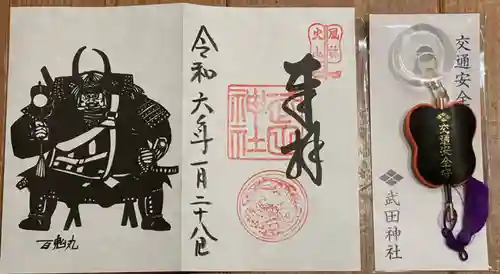 奉拝
風林
火山
武田
神社
令和六年一月二十八日
交通安全
交通安全守
武田神社